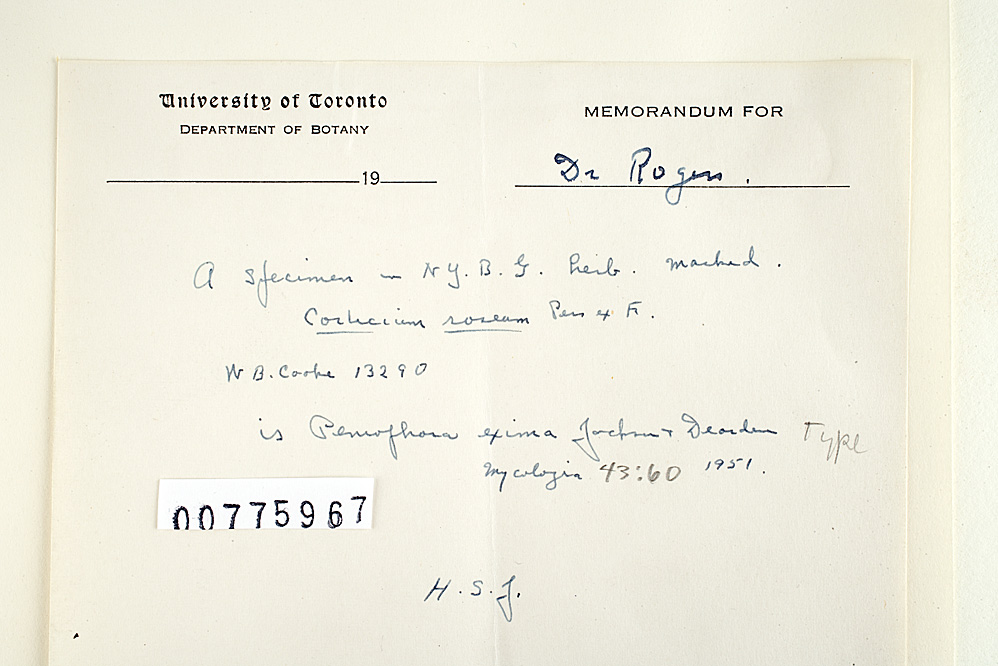 University of Toronto
DEPARTMENT OF BOTANY
MEMORANDUM FOR
19
Dr Rogers.
A specimen in N.Y.B.G. herb. marked.
Corticium roseum Pers ex Fr.
W B. Cooke 13290
is Peniophora exima Jackson + Dearden Type
Mycologia 43:60 1951.
00775967
H.S.J.